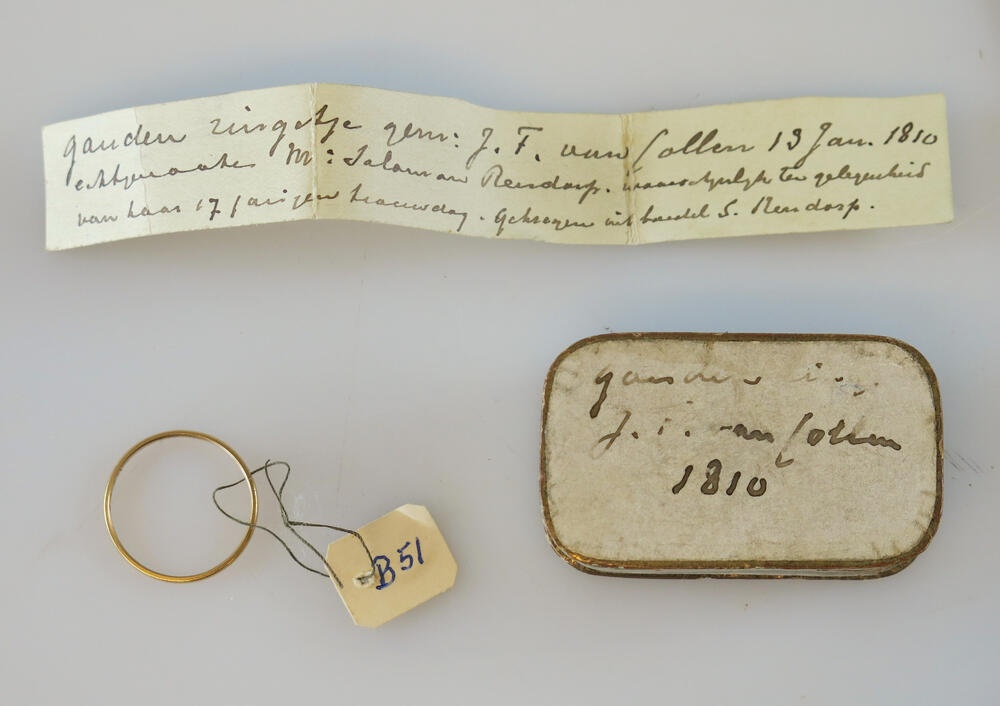 gouden ringetje gem: J. F. van Collen 13 Jan. 1810
echtgenoote Mr: Salomon Rendorp. waarschijnlijk ter gelegenheid
van haar 17 jarigen trouwdag. Gekregen uit boedel S. Rendorp.
gouden
J. van Collen
1810
B51